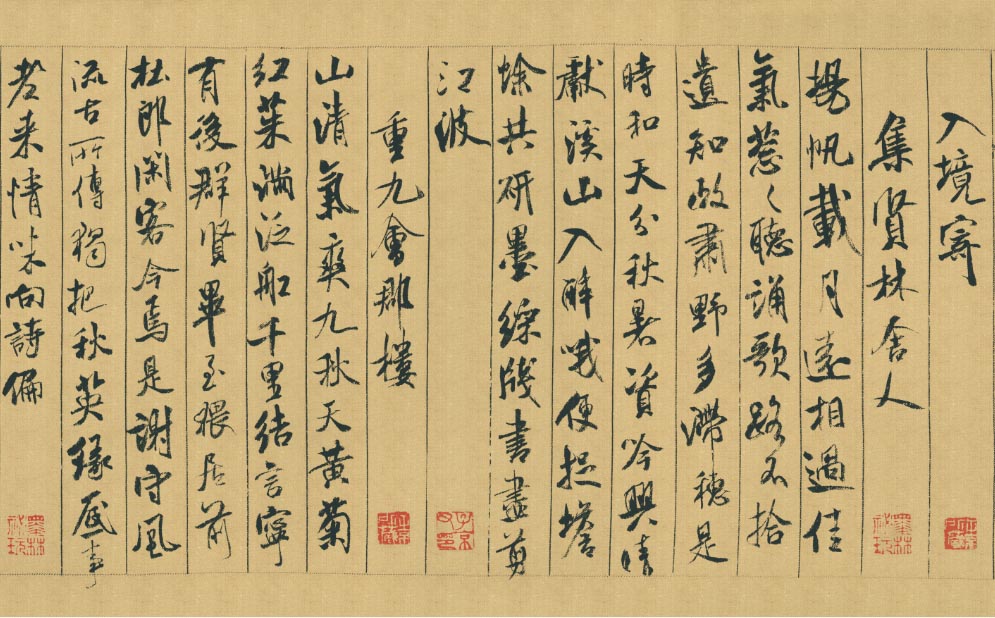 入境寄
集賢林舍人
揚帆載月遠相過佳
氣蔥々聽誦歌路不拾
遺知政肅野多滯穗是
時和天分秋暑資吟興晴
獻溪山入醉哦便捉蟾
蜍共研墨綵牋書盡剪
江波
重九會郡樓
山清氣爽九秋天黃菊
紅茱滿泛船千里結言寧
有後群賢畢至猥居前
杜郎閑客今焉是謝守風
流古所傳獨把秋英緣底事
老來情味向詩偏